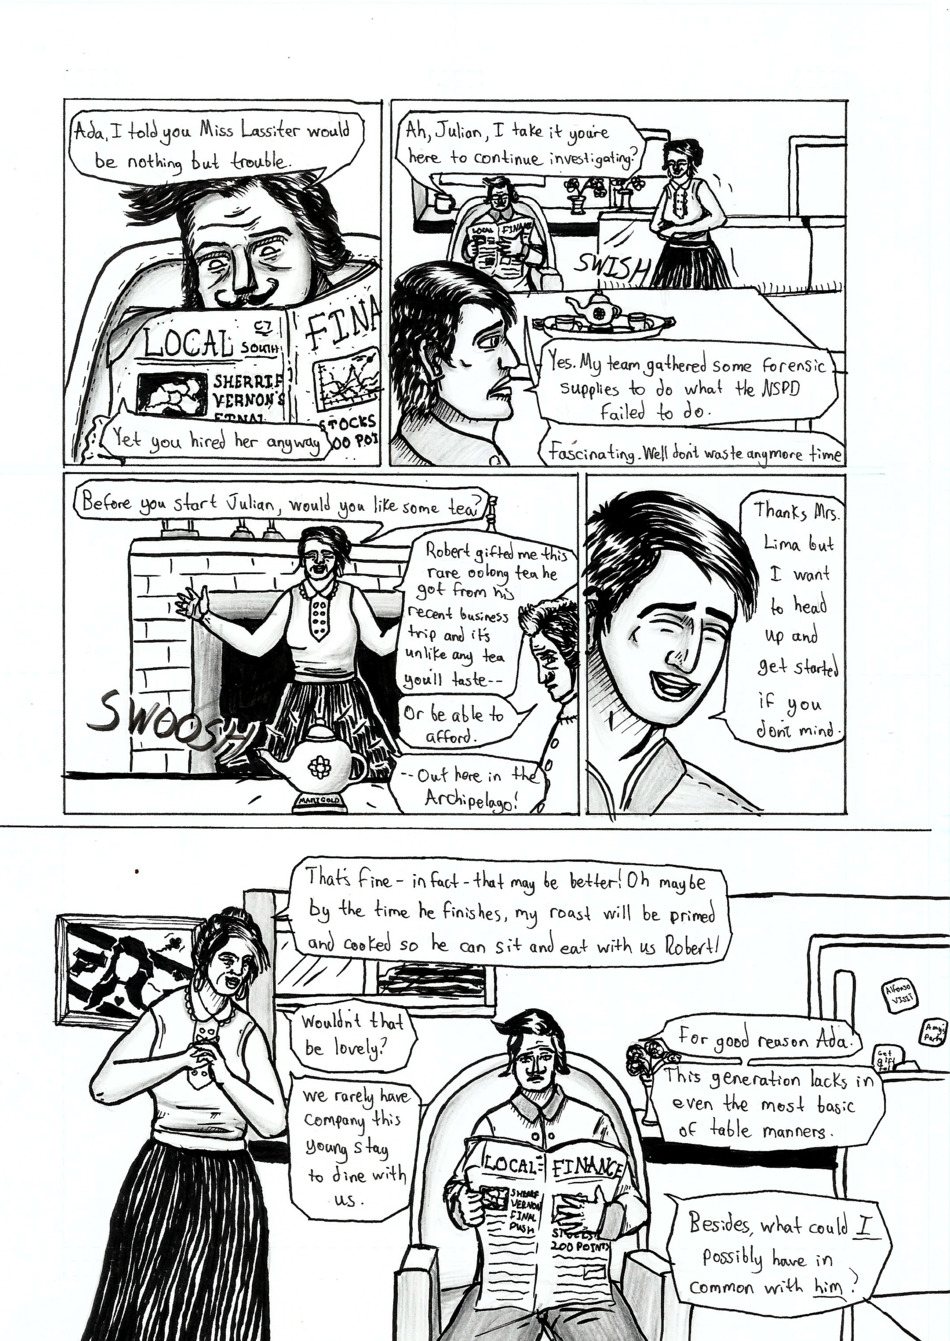 Ada, I told you Miss Lassiter would
be nothing but trouble.
LOCAL
SOUTH
FINA
SHERRIF
VERNON'S
FINAL
STOCKS
200 POI
Yet you hired her anyway
Ah, Julian, I take it you're
here to continue investigating?
LOCAL FINANC
SWISH
Yes. My team gathered some forensic
supplies to do what the NSPD
failed to do.
Fascinating. Well don't waste anymore time
Before you start Julian, would you like some tea?
Robert gifted me this
rare oolong tea he
got from his
recent business
trip and it's
unlike any tea
you'll taste--
Or be able to
afford.
--Out here in the
Archipelago!
SWOOSH
MARIGOLD
Thanks Mrs.
Lima but
I want
to head
up and
get started
if you
don't mind.
That's fine - in fact - that may be better! Oh maybe
by the time he finishes, my roast will be primed
and cooked so he can sit and eat with us Robert!
Wouldn't that
be lovely?
we rarely have
company this
young stay
to dine with
us.
For good reason Ada.
This generation lacks in
even the most basic
of table manners.
Besides, what could I
possibly have in
common with him?
LOCAL FINANCE
SHERIF
VERNON
FINAL
PUSH
200 POINTS
Alfonso
Amy's
Party
Get
gift